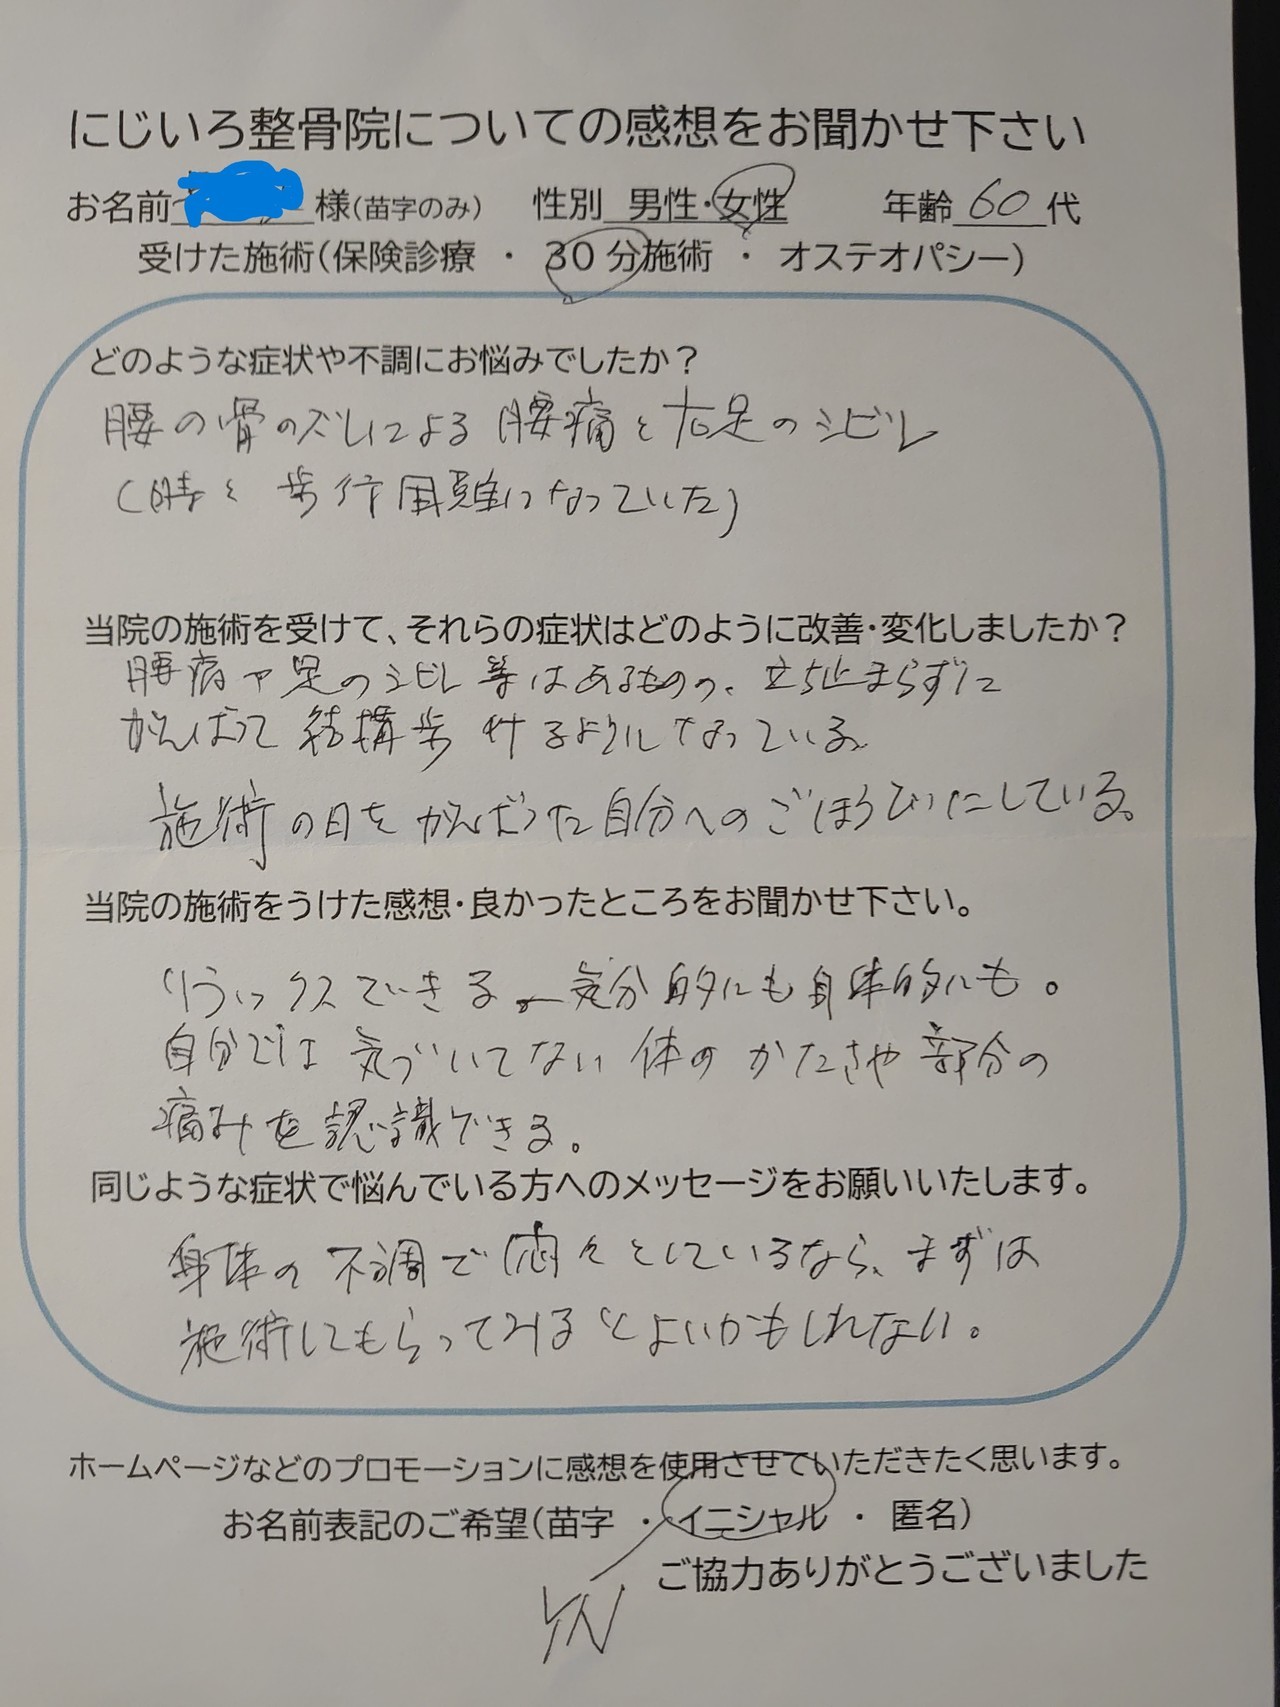 にじいろ整骨院についての感想をお聞かせ下さい
お名前 様(苗字のみ) 性別 男性・女性 年齢 60 代
受けた施術(保険診療 ・ 30分施術 ・ オステオパシー)
どのような症状や不調にお悩みでしたか？
腰の骨のズレによる 腰痛と右足のシビレ
(時々 歩行困難になっていた)
当院の施術を受けて、それらの症状はどのように改善・変化しましたか？
腰痛や足のシビレ等はあるものの、立ち止まらずに
がんばって 結構歩けるようになっている。
施術の日をがんばった自分へのごほうびにしている。
当院の施術をうけた感想・良かったところをお聞かせ下さい。
リラックスできる。気分的にも身体的にも。
自分では気づいてない 体のかたさや部分の
痛みを認識できる。
同じような症状で悩んでいる方へのメッセージをお願いいたします。
身体の不調で悶々としているなら、まずは
施術してもらってみるとよいかもしれない。
ホームページなどのプロモーションに感想を使用させていただきたく思います。
お名前表記のご希望(苗字 ・ イニシャル ・ 匿名)
ご協力ありがとうございました